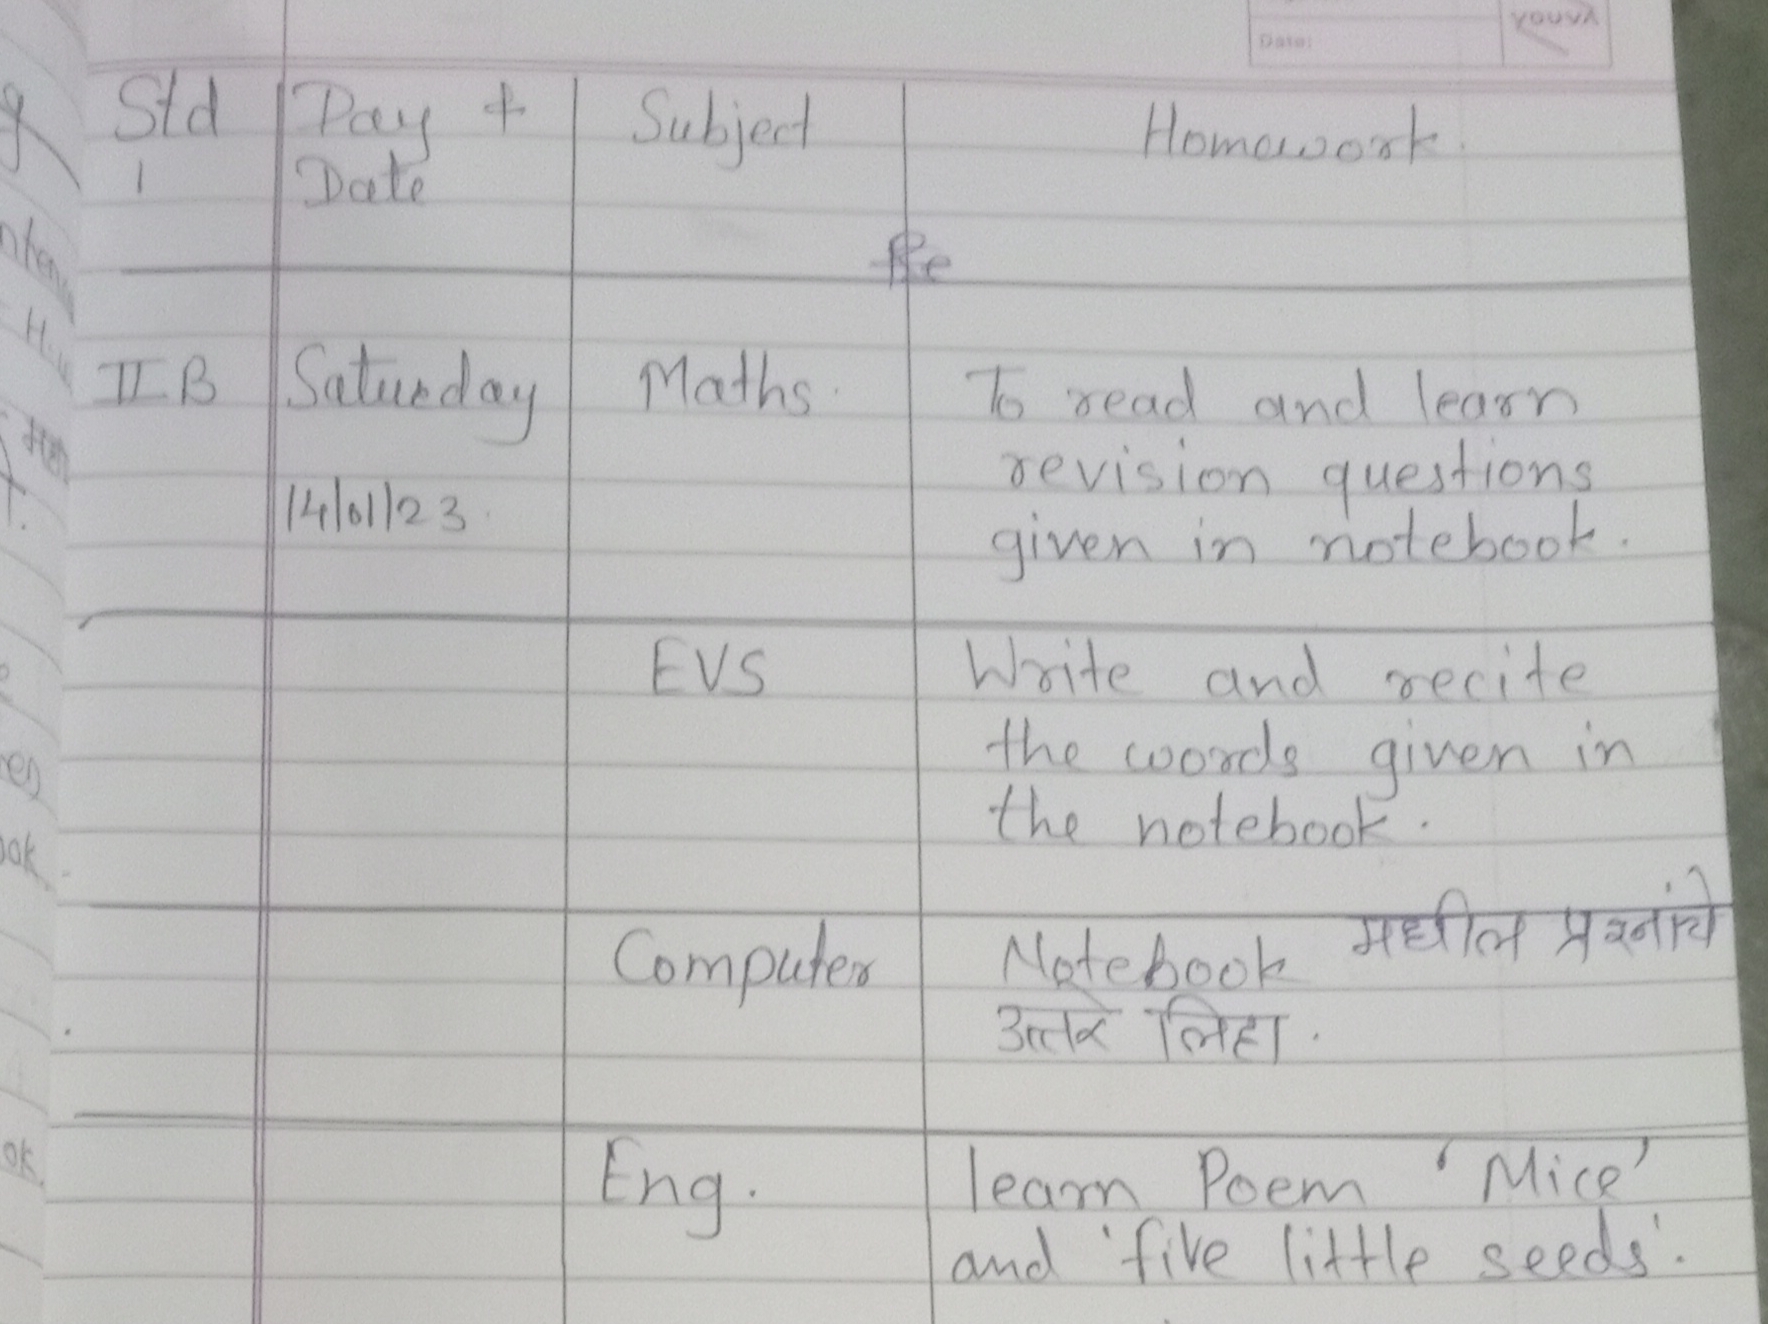 YOUVA
Date:
Std Day + Subject Homework.
1 Date
IIB Saturday Maths. To read and learn
revision questions
14/01/23. given in notebook.
EVS Write and recite
the words given in
the notebook.
Computer Notebook मधील प्रश्नांचे
उत्तरे लिहा.
Eng. learn Poem 'Mice'
and 'five little seeds'.